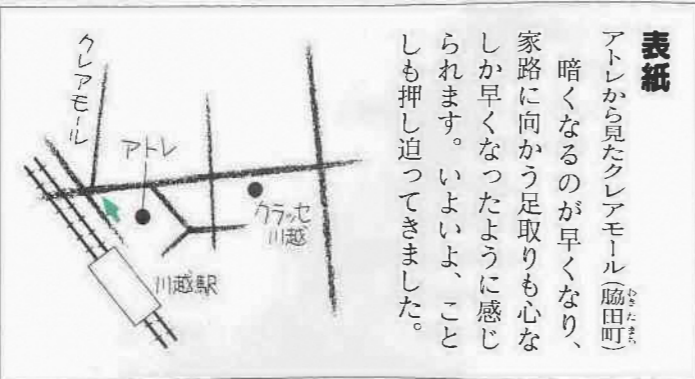 表紙
アトレから見たクレアモール(脇田町)
わきたまち
暗くなるのが早くなり、
家路に向かう足取りも心な
しか早くなったように感じ
られます。いよいよ、こと
しも押し迫ってきました。
クレアモール
アトレ
クラッセ
川越
川越駅